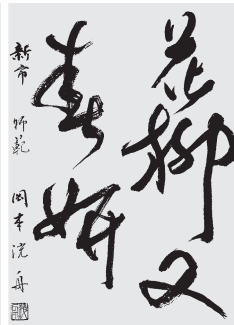 花柳又
春妍
新市 師範 岡本浣舟